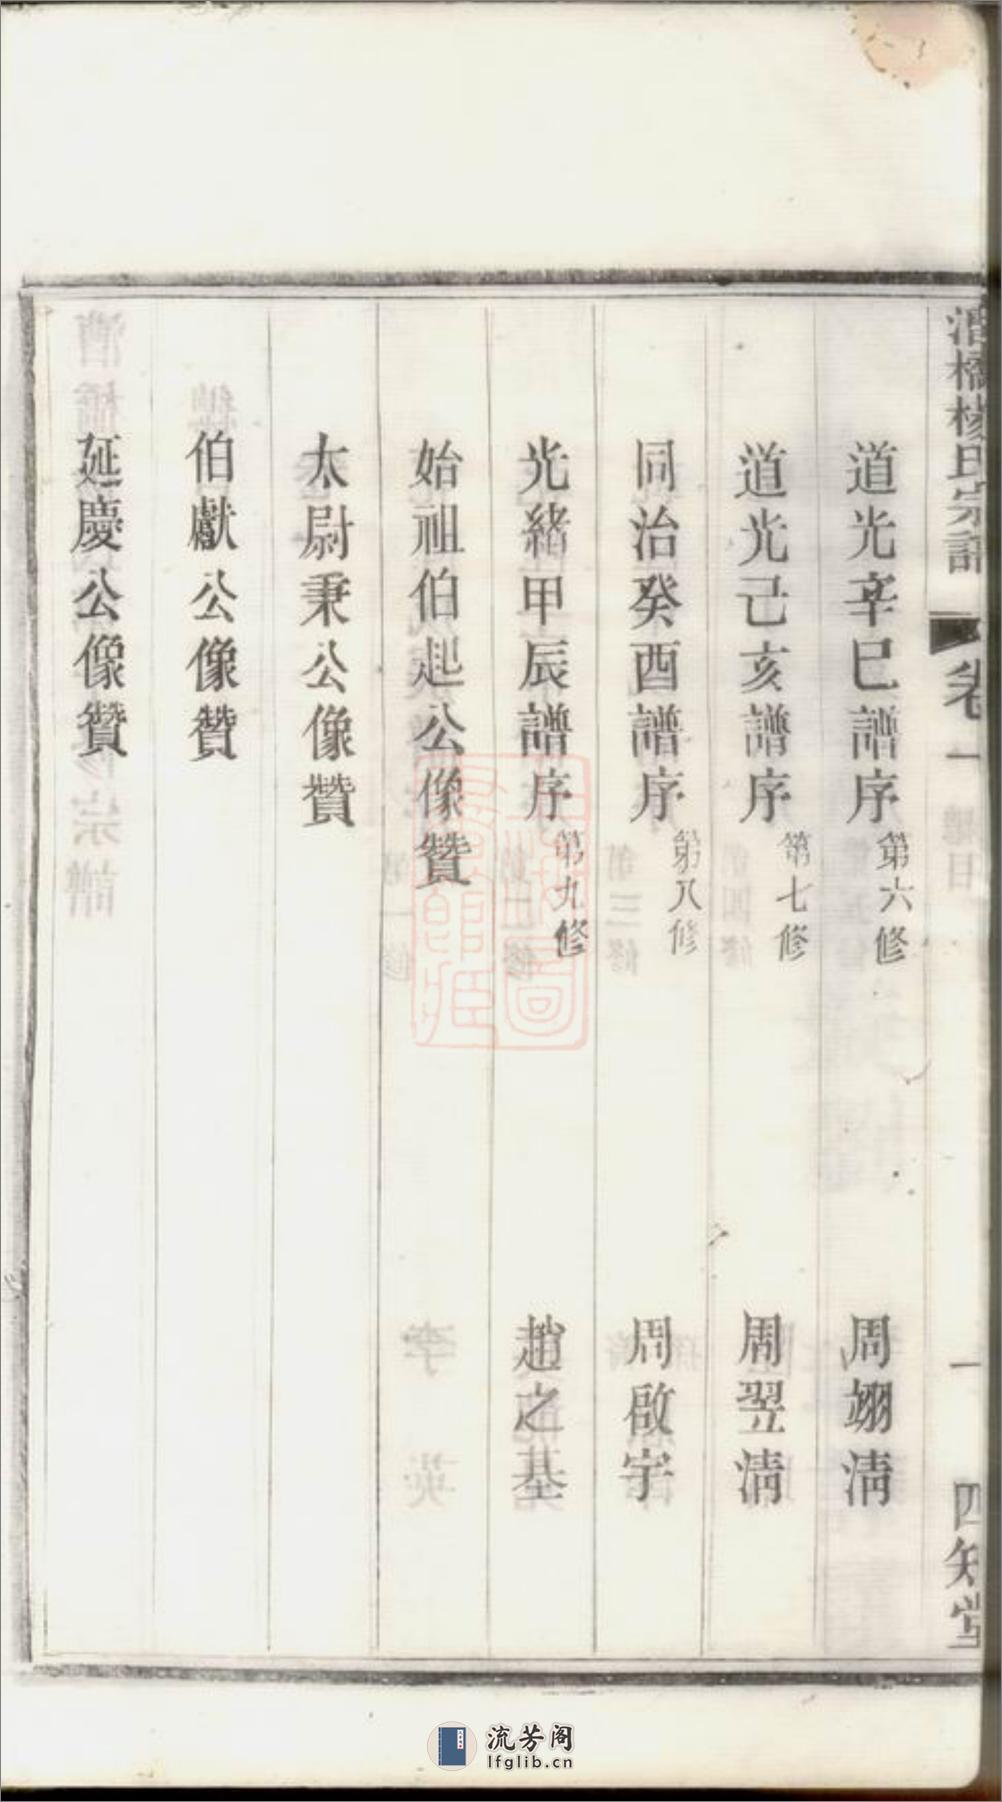 漕橋楊氏宗譜 卷一 總目 一 四知堂
道光辛巳譜序 第六修 周翊淸
道光己亥譜序 第七修 周翌淸
同治癸酉譜序 第八修 周啟宇
光緖甲辰譜序 第九修 趙之基
始祖伯起公像贊
太尉秉公像贊
伯獻公像贊
延慶公像贊
流芳阁
lfglib.cn